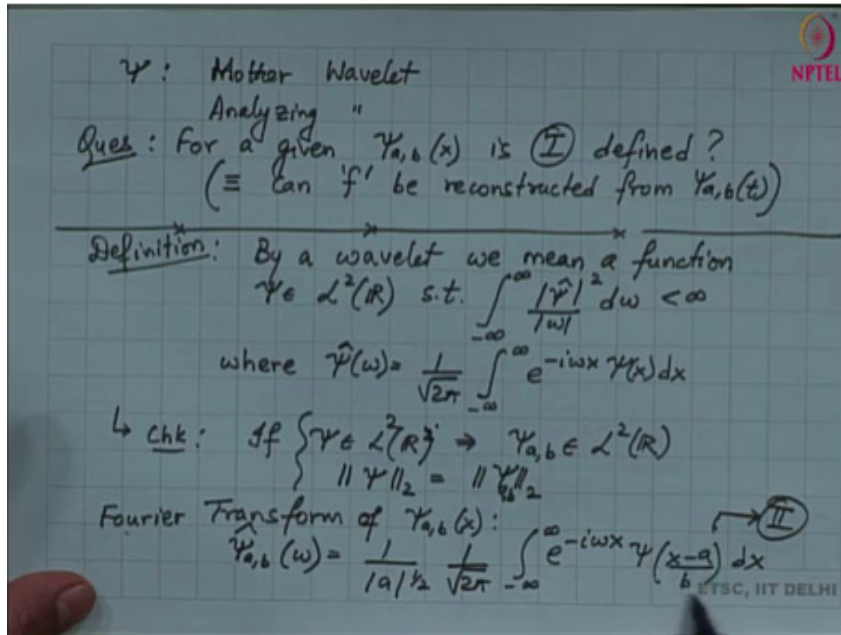 NPTEL
Ψ : Mother Wavelet
Analyzing "
Ques : For a given Ψa,b(x) is Ⓘ defined ?
(≡ Can 'f' be reconstructed from Ψa,b(t))
Definition : By a wavelet we mean a function
Ψ ∈ L²(R) s.t. ∫_{-∞}^{∞} |Ψ̂|²/|ω| dω < ∞
where Ψ̂(ω) = 1/√2π ∫_{-∞}^{∞} e^{-iωx} Ψ(x) dx
↳ Chk : If { Ψ ∈ L²(R) } ⇒ Ψa,b ∈ L²(R)
|| Ψ ||₂ = || Ψa,b ||₂
Fourier Transform of Ψa,b(x) : → Ⓘ Ⓘ
Ψ̂a,b(ω) = 1/|a|^{1/2} 1/√2π ∫_{-∞}^{∞} e^{-iωx} Ψ((x-a)/b) dx
ETSC, IIT DELHI